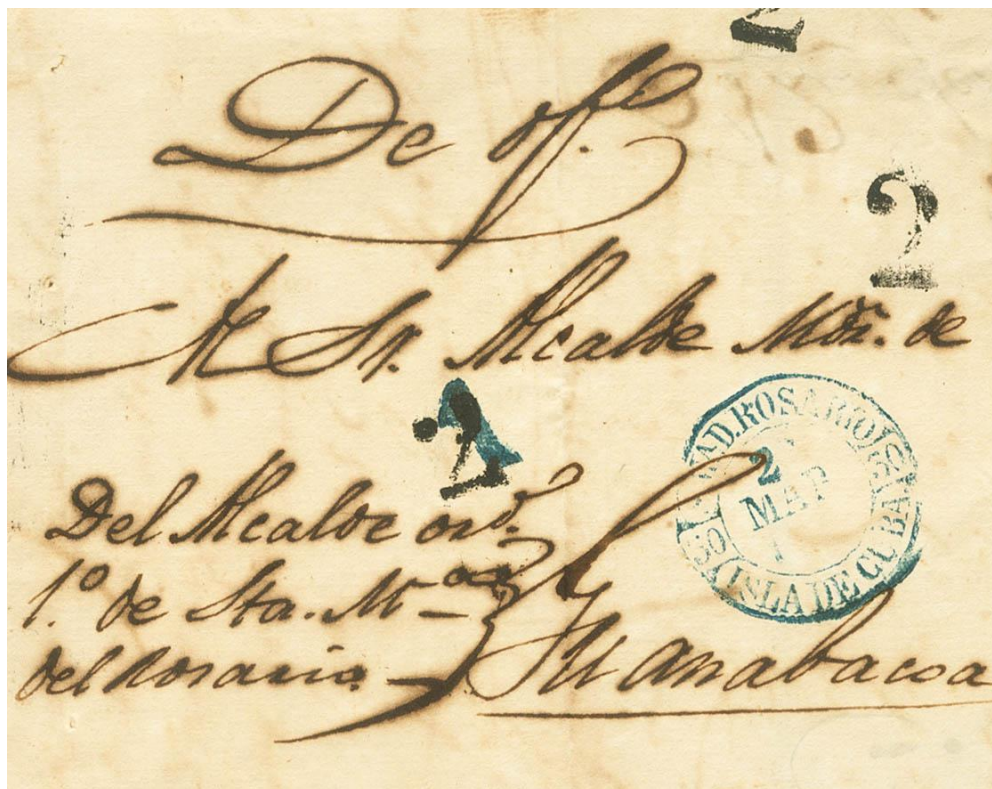 2
De ofº
2
A Sr. Alcalde Mor. de
2
STAND.ROSARIO(ISLA
2
MAR
ISLA DE CUBA
Del Alcalde ord.
1.º de Sta. M-
del Rosario
Guanabacoa